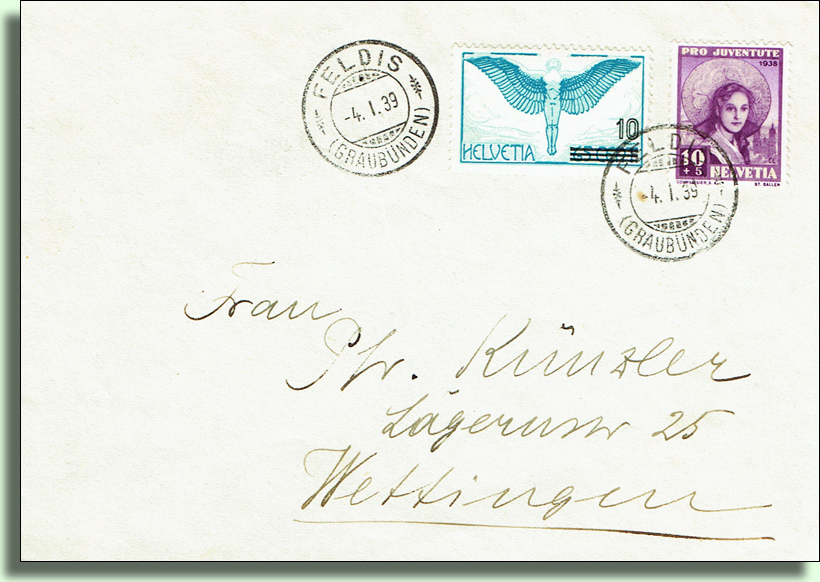 FELDIS
-4. I. 39
(GRAUBÜNDEN)
10
HELVETIA
PRO JUVENTUTE
1938
10
+5
HELVETIA
ST. GALLEN
FELDIS
-4. I. 39
(GRAUBÜNDEN)
Frau
Pfr. Künzler
Lägernstr 25
Wettingen